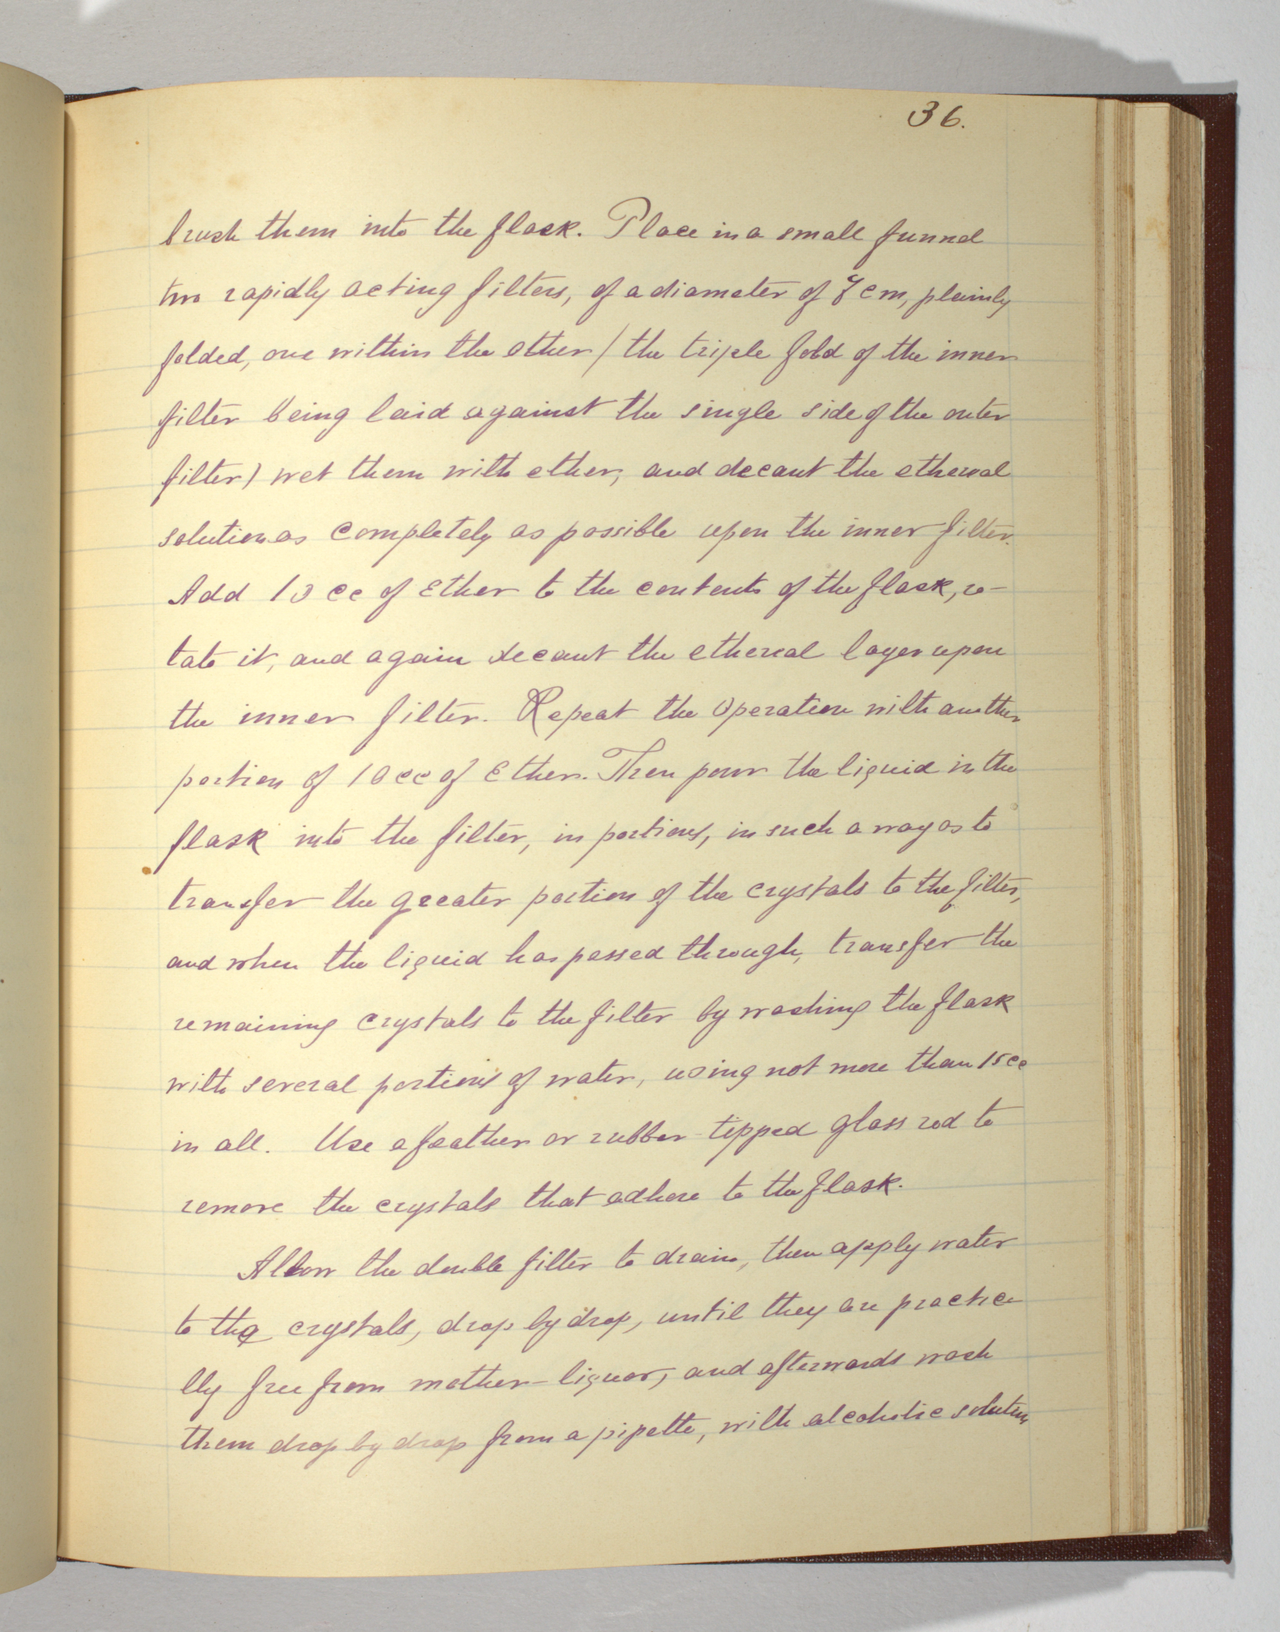 36.
brush them into the flask. Place in a small funnel
two rapidly acting filters, of a diameter of 7 cm, plainly
folded, one within the other (the triple fold of the inner
filter being laid against the single side of the outer
filter) wet them with ether, and decant the ethereal
solution as completely as possible upon the inner filter.
Add 10 cc of Ether to the contents of the flask, ro-
tate it, and again decant the ethereal layer upon
the inner filter. Repeat the Operation with another
portion of 10 cc of Ether. Then pour the liquid in the
flask into the filter, in portions, in such a way as to
transfer the greater portion of the crystals to the filter,
and when the liquid has passed through, transfer the
remaining crystals to the filter by washing the flask
with several portions of water, using not more than 15 cc
in all. Use a feather or rubber tipped glass rod to
remove the crystals that adhere to the flask.
Allow the double filter to drain, then apply water
to the crystals, drop by drop, until they are practica
lly free from mother-liquor, and afterwards wash
them drop by drop from a pipette, with alcoholic solution